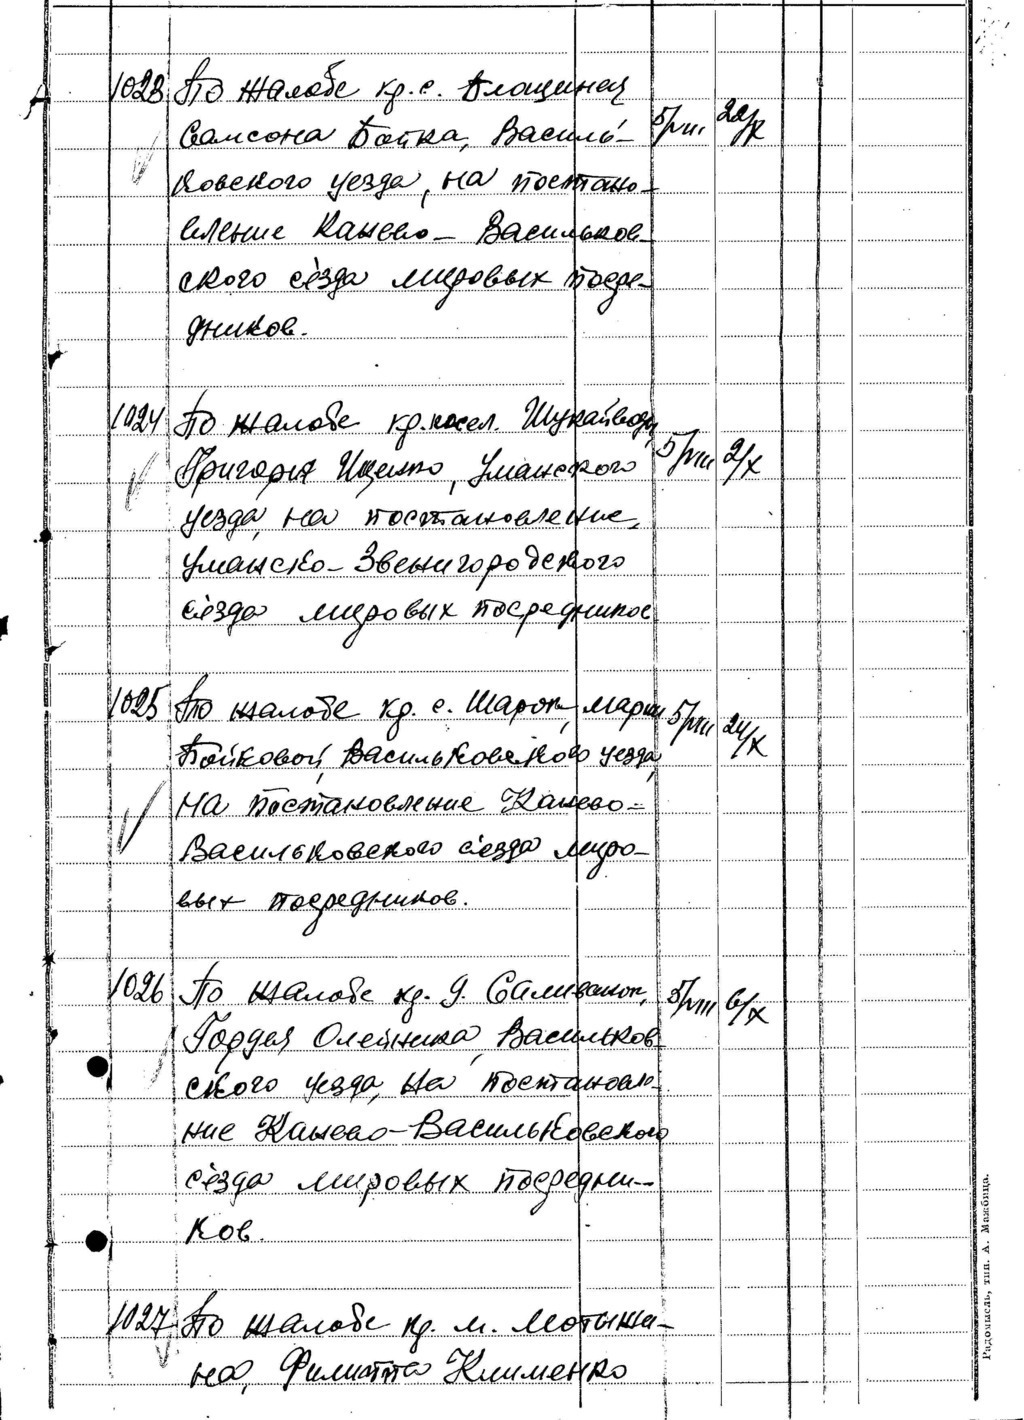 1023 По жалобе кр. с. Блощинец 5/VIII 22/X
Самсона Бойка, Василь-
ковского уезда, на постано-
вление Канево-Васильков-
ского с'езда мировых посре-
дников.
1024 По жалобе кр. посел. Шукайвода, 5/VIII 2/X
Григория Ищенко, Уманского
уезда, на постановление
Уманско-Звенигородского
с'езда мировых посредников
1025 По жалобе кр. с. Шарок, Марии 5/VIII 24/X
Бойковой, Васильковского уезда,
на постановление Канево-
Васильковского с'езда миро-
вых посредников.
1026 По жалобе кр. д. Саливонок, 5/VIII 6/X
Гордея Олейника, Васильков-
ского уезда, на постановле-
ние Канево-Васильковского
с'езда мировых посредни-
ков.
1027 По жалобе кр. м. Мотыжи-
на, Филиппа Клименко
Радомысль, тип. А. Мажбица.